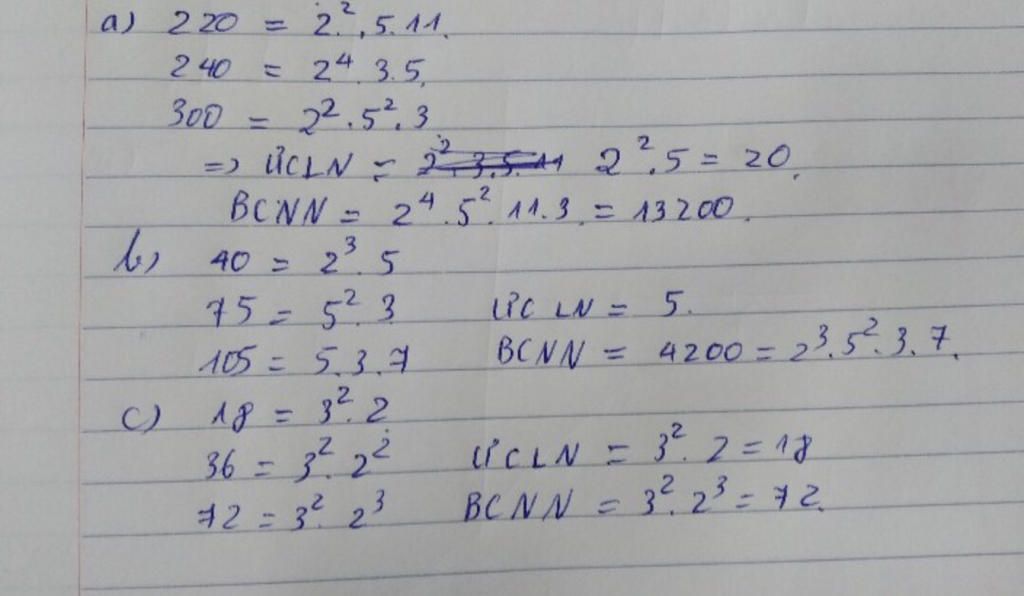 a) 220 = 2².5.11.
240 = 2⁴.3.5.
300 = 2².5².3
=> ƯCLN = 2².5 = 20.
BCNN = 2⁴.5².11.3 = 13200.
b) 40 = 2³.5
75 = 5².3 ƯCLN = 5.
105 = 5.3.7 BCNN = 4200 = 2³.5².3.7.
c) 18 = 3².2
36 = 3².2² ƯCLN = 3².2 = 18
72 = 3².2³ BCNN = 3².2³ = 72.